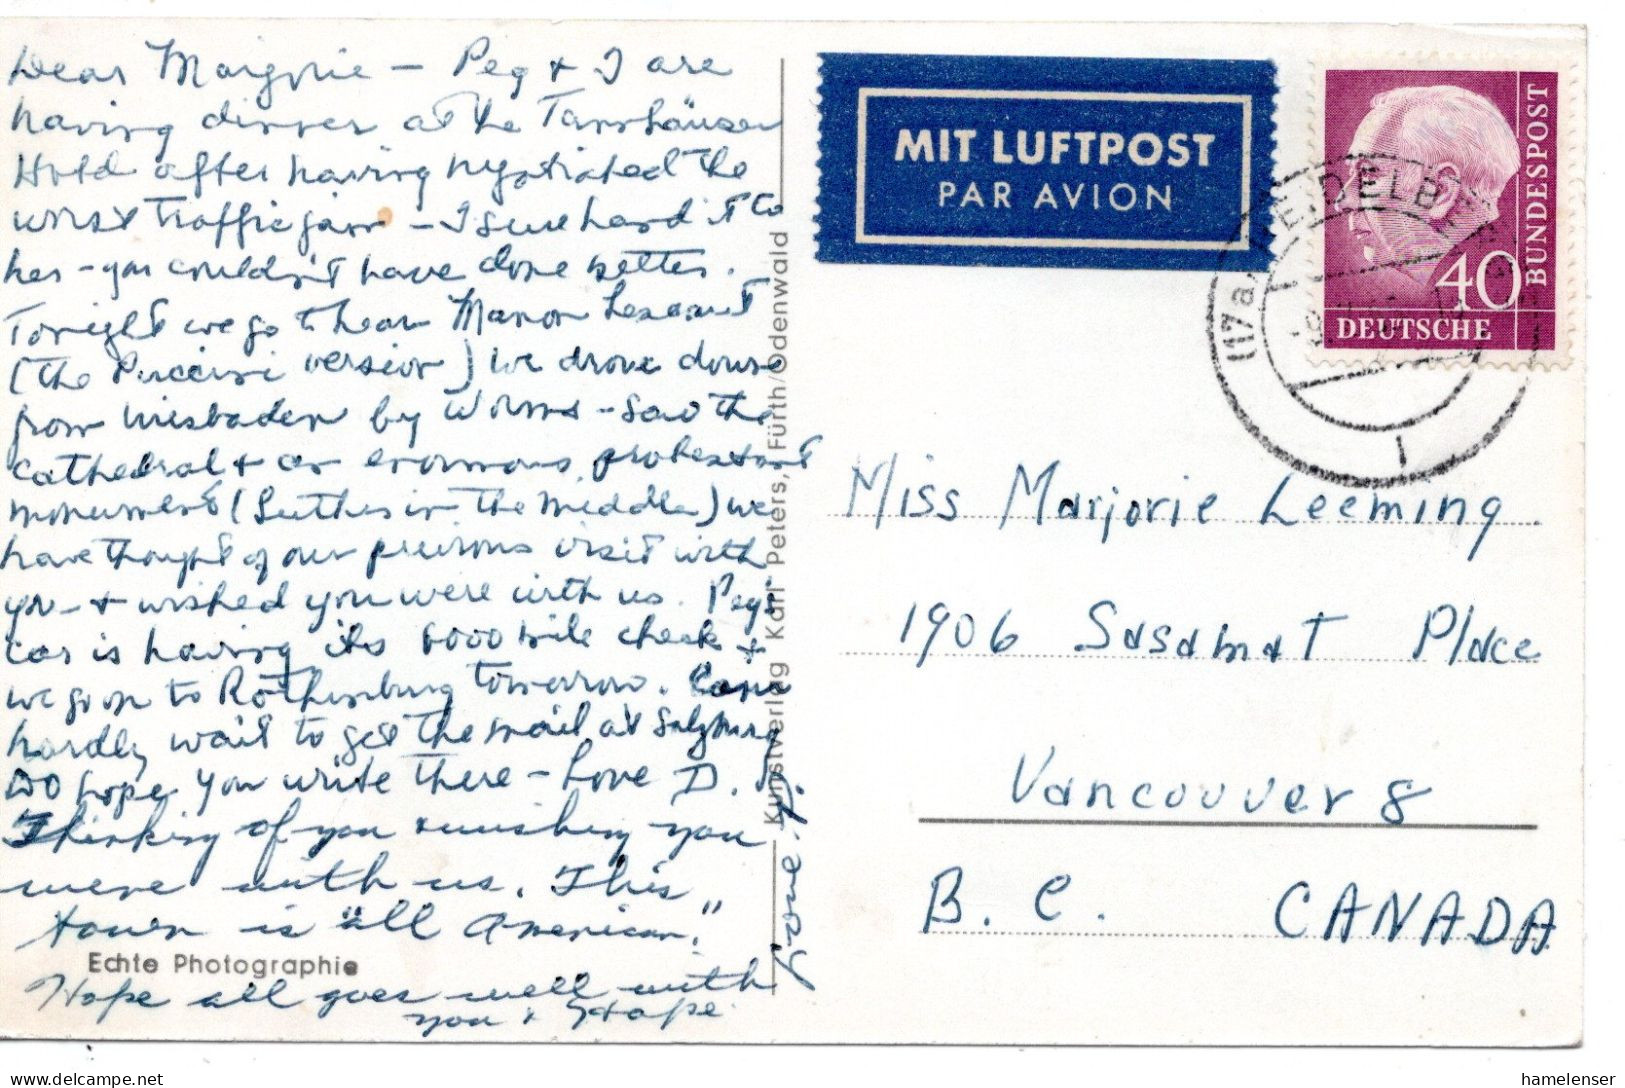 Dear Marjorie - Peg + I are
having dinner at the Tannhäuser
Hotel after having negotiated the
worst traffic jam - I sure hand it to
her - you couldn't have done better.
Tonight we go to hear Manon Lescaut
(the Puccini version) We drove down
from Wiesbaden by Worms - saw the
cathedral + an enormous protestant
monument (Luther in the middle) we
have thought of our previous visit with
you - + wished you were with us. Peg's
car is having its 6000 mile check +
we go on to Rothenburg tomorrow. Can
hardly wait to get the mail at Salzburg
Do hope you write there - Love D.
Thinking of you + wishing you
were with us. This
town is "all American."
Hope all goes well with
you + Hope
Love P.
Echte Photographie
Kunstverlag Karl Peters, Fürth/Odenwald
MIT LUFTPOST
PAR AVION
(17a) HEIDELBERG
1
40
DEUTSCHE
BUNDESPOST
Miss Marjorie Leeming
1906 Sasamat Place
Vancouver 8
B. C. CANADA
hamelenser